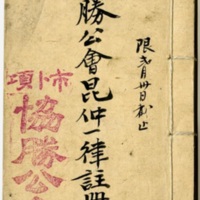 限弍月卅日截止
勝公會昆仲一律註冊
市卜項
協勝公